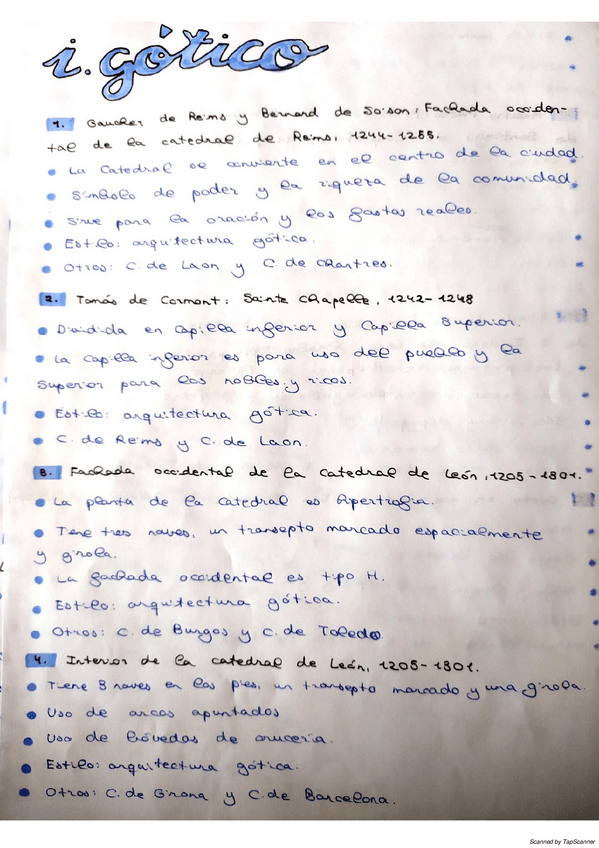 i. gótico
1. Gaucher de Reims y Bernard de Soison, Fachada occiden-
tal de la catedral de Reims, 1244-1255.
• La Catedral se convierte en el centro de la ciudad.
• Símbolo de poder y la riqueza de la comunidad.
• Sirve para la oración y los gastos reales.
• Estilo: arquitectura gótica.
• Otros: C. de Laon y C. de Chartres.
2. Tomás de Cormont: Sainte Chapelle, 1242-1248
• Dividida en Capilla inferior y Capilla Superior.
• La capilla inferior es para uso del pueblo y la
Superior para los nobles y ricos.
• Estilo: arquitectura gótica.
• C. de Reims y C. de Laon.
3. Fachada occidental de la Catedral de León, 1205-1301.
• La planta de la catedral es hipertrofia.
• Tiene tres naves, un transepto marcado espacialmente
y girola.
• La fachada occidental es tipo H.
• Estilo: arquitectura gótica.
• Otros: C. de Burgos y C. de Toledo
4. Interior de la catedral de León, 1205-1301.
• Tiene 3 naves en los pies, un transepto marcado y una girola.
• Uso de arcos apuntados
• Uso de bóvedas de crucería.
• Estilo: arquitectura gótica.
• Otros: C. de Girona y C. de Barcelona.
Scanned by TapScanner